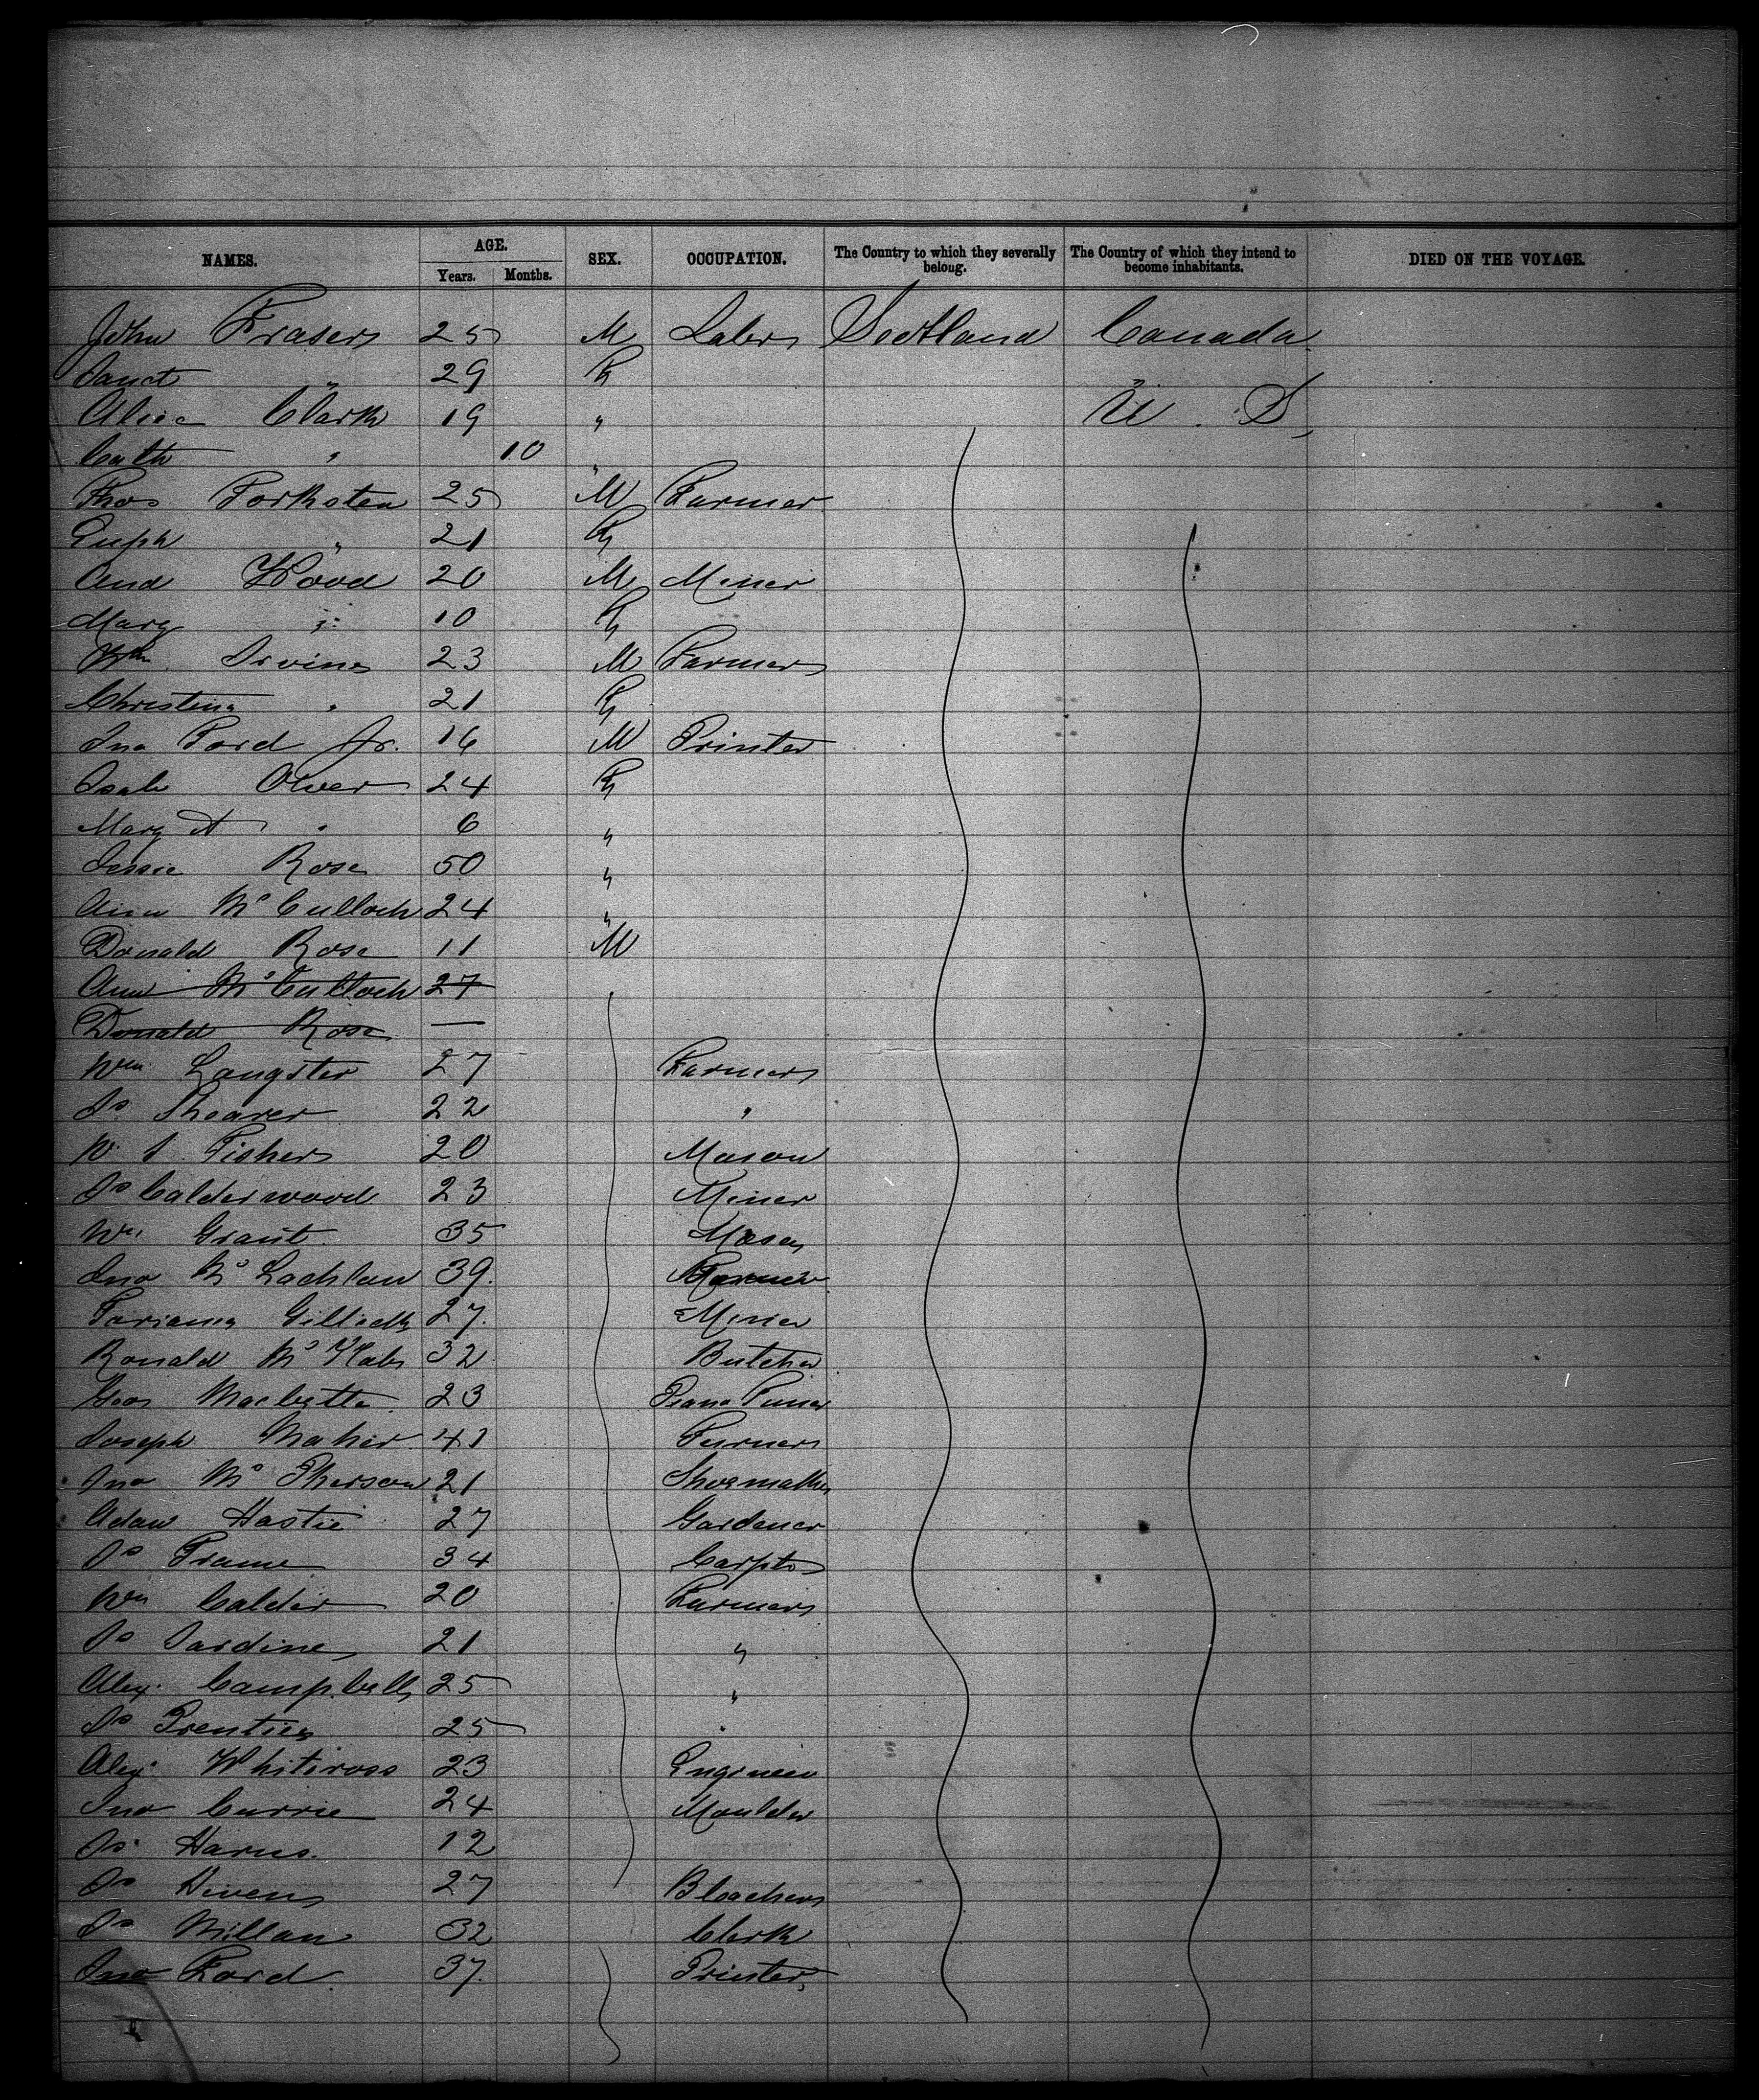 NAMES. AGE. SEX. OCCUPATION. The Country to which they severally belong. The Country of which they intend to become inhabitants. DIED ON THE VOYAGE.
Years. Months.
John Fraser 25 M Labr Scotland Canada
Janet " 29 F "
Alice Clark 19 " U. S.
Cath " 10 "
Thos 25 M Farmer
Euph " 21 F
And Wood 20 M Miner
Mary " 10 F
Wm Irvine 23 M Farmer
Christina " 21 F
Jno Ford Jr. 16 M Printer
Isab Oliver 24 F
Marg A " 6 "
Jessie Rose 50 "
Ann McCulloch 24 "
Donald Rose 11 M
Ann McCulloch 27
Donald Rose —
Wm Langster 27 Farmer
Js Shearer 22 "
W. Fisher 20 Mason
Js Calderwood 23 Miner
Wm Grant 35 Mason
Jno McLachlan 39.
Gillies 27. Miner
Ronald McNab 32 Butcher
Geo Macbeth 23 Piano Tuner
Joseph Maher 41 Turner
Jno McPherson 21 Shoemaker
Adam Hastie 27 Gardener
Js Frame 34 Carptr
Wm Calder 20 Farmer
Js Jardine 21 "
Alex. Campbell 25 "
Js Prentice 25 "
Alex. Whitecross 23 Engineer
Jno Currie 24 Moulder
Js 12
Js Niven 27 Bleacher
Js Millan 32 Clerk
Jno Ford 37. Printer